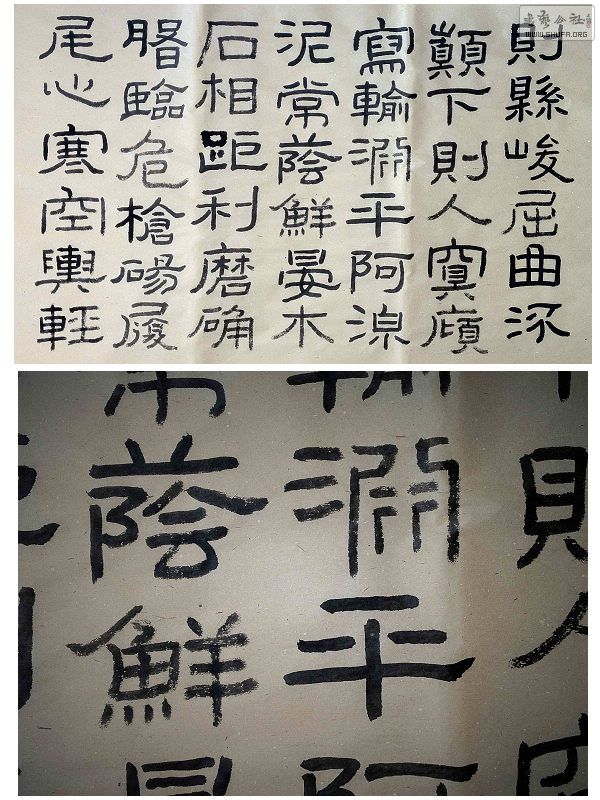 書藝公社
WWW.SHUFA.ORG
則縣峻屈曲流
顛下則人冥廎
寫輸淵平阿湶
泥常蔭鮮晏木
石相距利磨确
臨危槍碭履
尾心寒空輿輕
則人
輸淵平阿
常蔭鮮晏